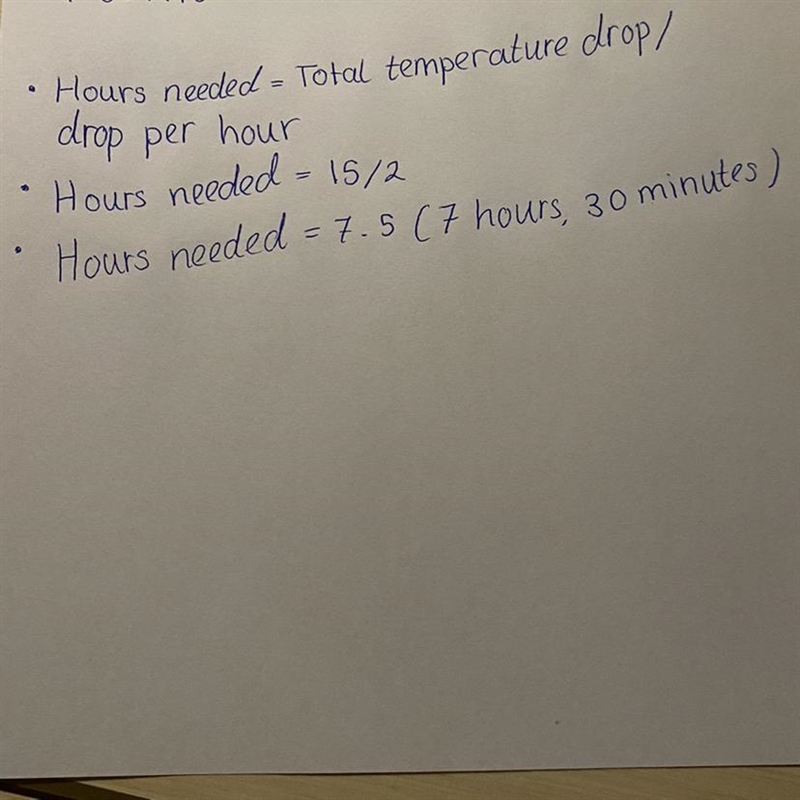 • Hours needed = Total temperature drop/
drop per hour
• Hours needed = 15/2
• Hours needed = 7.5 (7 hours, 30 minutes)